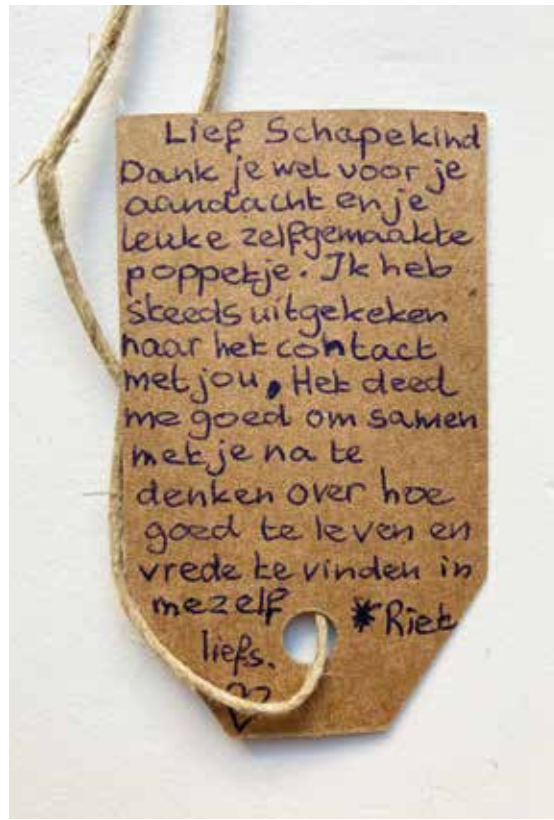 Lief Schapekind
Dank je wel voor je
aandacht en je
leuke zelfgemaakte
poppetje. Ik heb
steeds uitgekeken
naar het contact
met jou. Het deed
me goed om samen
met je na te
denken over hoe
goed te leven en
vrede te vinden in
mezelf
*Riet
liefs.